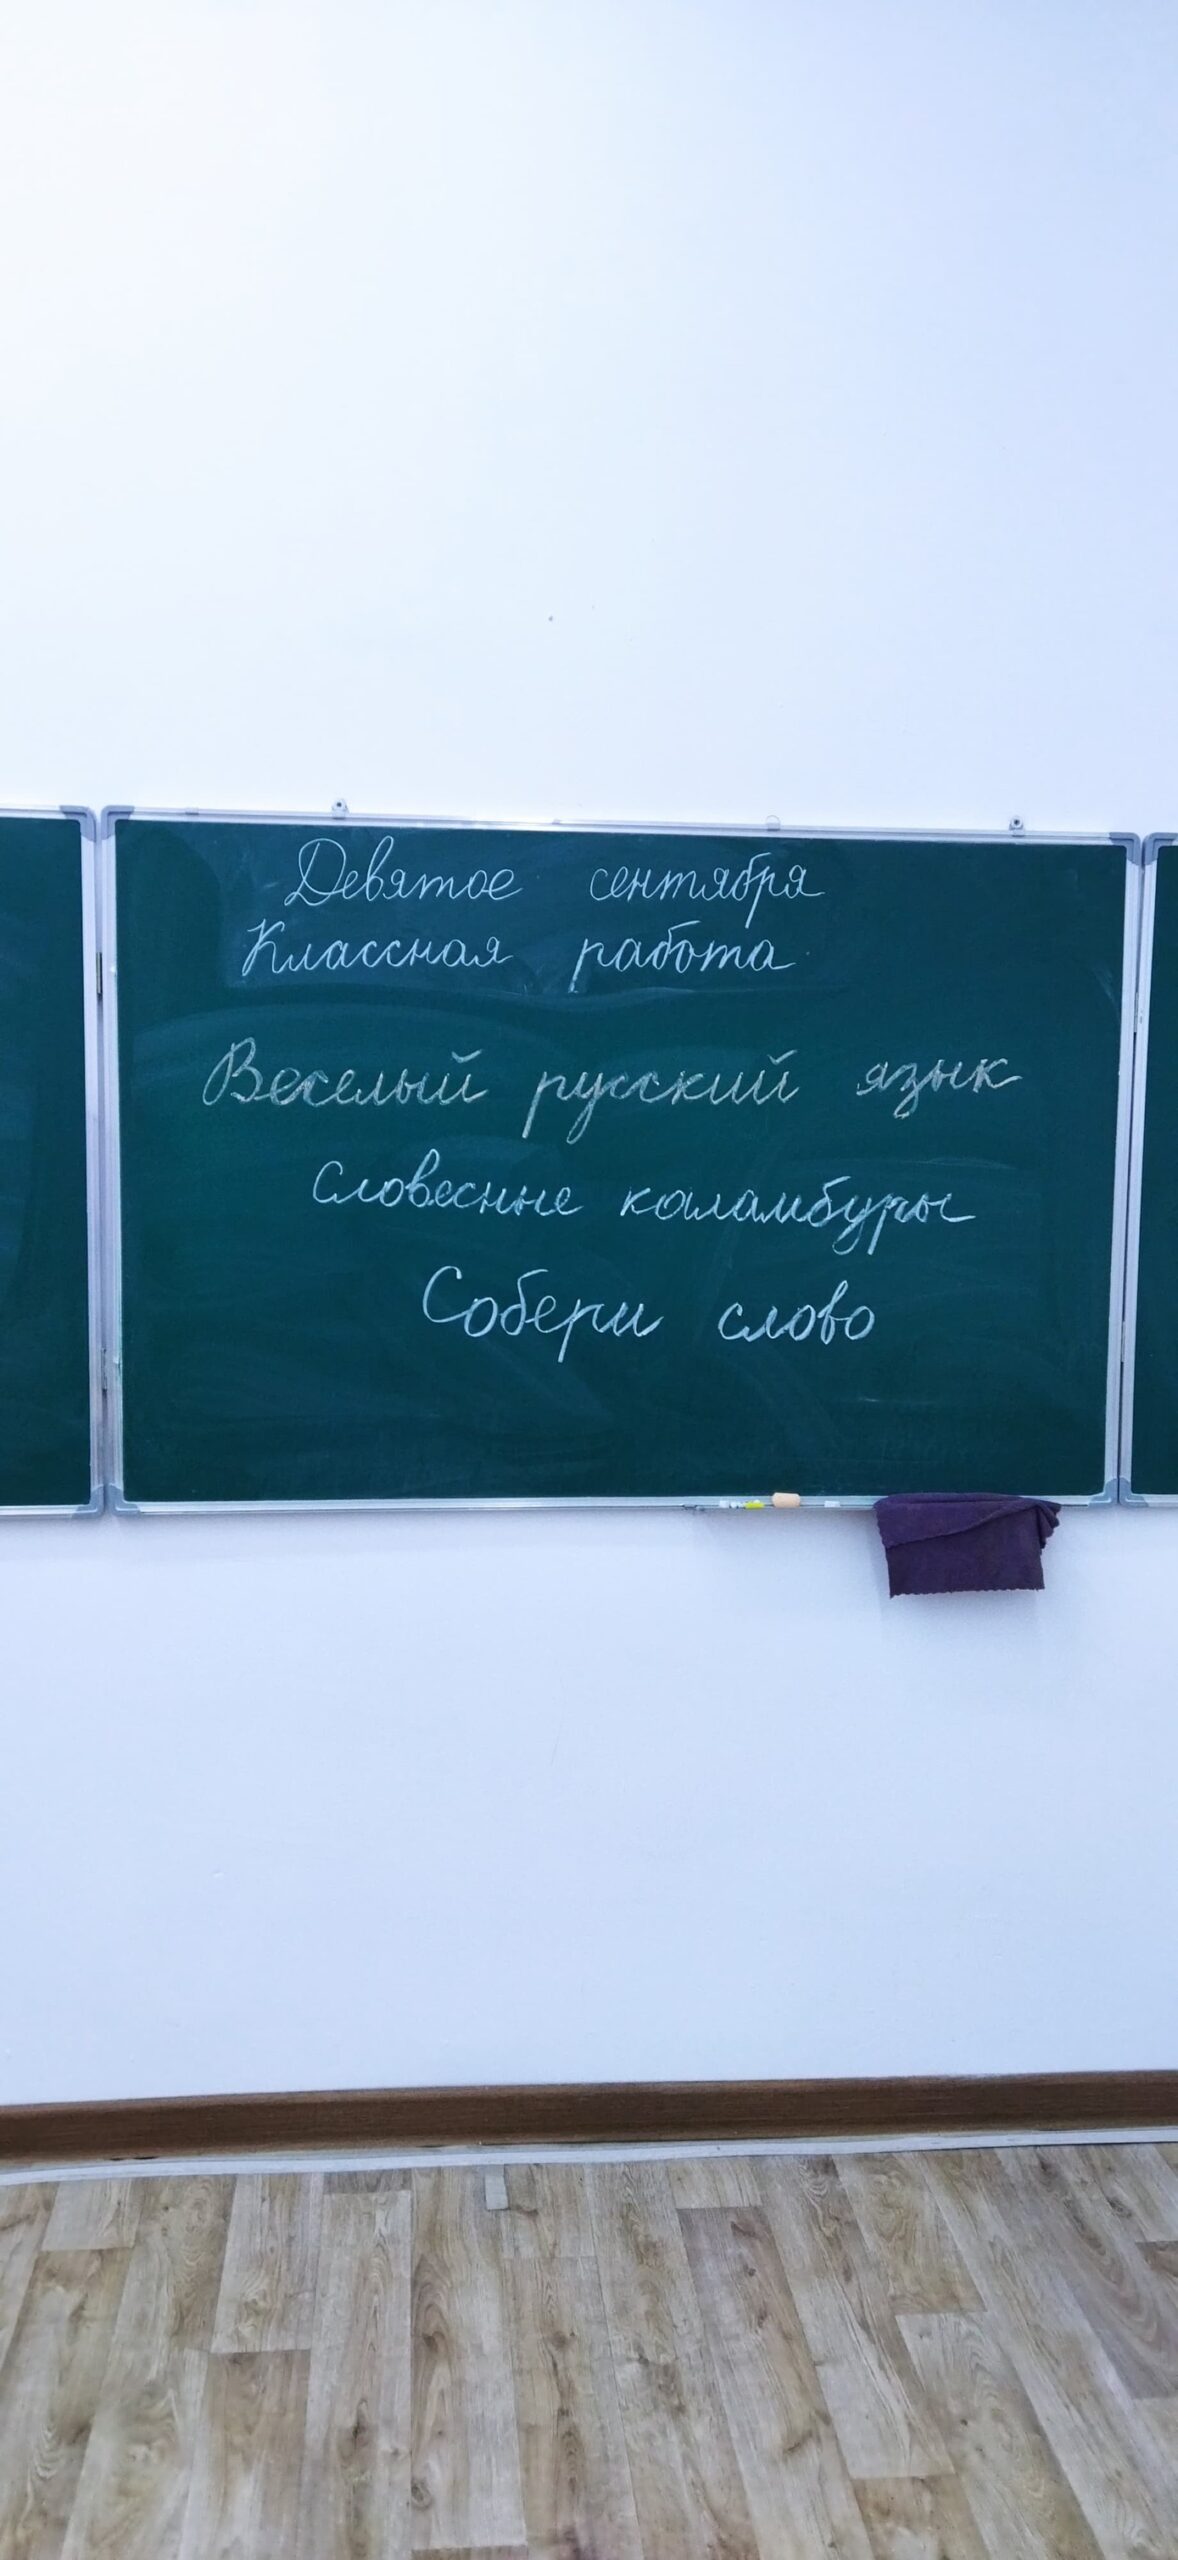 Девятое сентября
Классная работа
Веселый русский язык
Словесные каламбуры
Собери слово